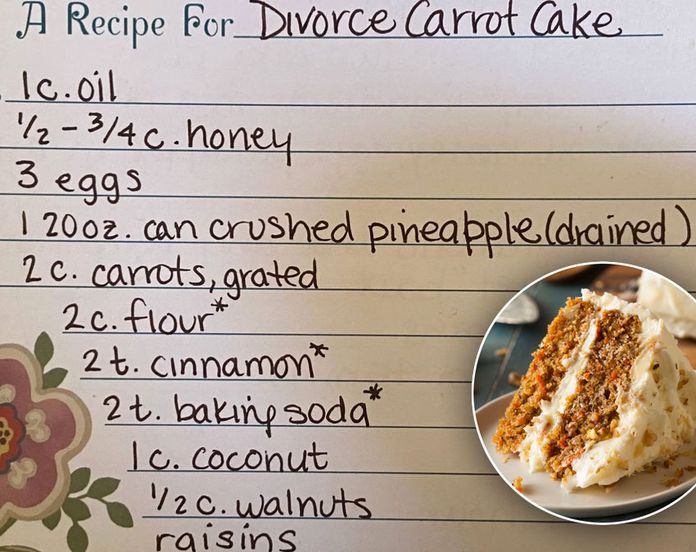 A Recipe For Divorce Carrot Cake
1 c. oil
1/2 - 3/4 c. honey
3 eggs
1 20 oz. can crushed pineapple (drained)
2 c. carrots, grated
2 c. flour*
2 t. cinnamon*
2 t. baking soda*
1 c. coconut
1/2 c. walnuts
raisins